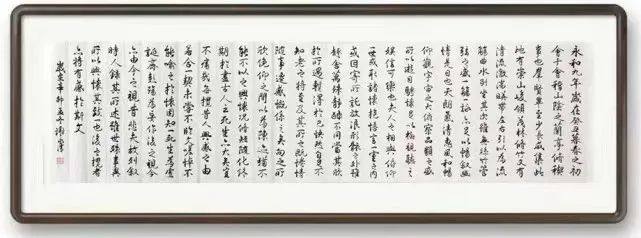 永和九年歲在癸丑暮春之初
會于會稽山陰之蘭亭脩禊
事也群賢畢至少長咸集此
地有崇山峻領茂林脩竹又有
清流激湍暎帶左右引以為流
觴曲水列坐其次雖無絲竹管
弦之盛一觴一詠亦足以暢敘幽
情是日也天朗氣清惠風和暢
仰觀宇宙之大俯察品類之盛
所以遊目騁懷足以極視聽之
娛信可樂也夫人之相與俯仰
一世或取諸懷抱悟言一室之內
或因寄所託放浪形骸之外雖
趣舍萬殊靜躁不同當其欣
於所遇暫得於己快然自足不
知老之將至及其所之既惓情
隨事遷感慨係之矣向之所
欣俛仰之間以為陳迹猶不
能不以之興懷況脩短隨化終
期於盡古人云死生亦大矣豈
不痛哉每攬昔人興感之由
若合一契未嘗不臨文嗟悼不
能喻之於懷固知一死生為虛
誕齊彭殤為妄作後之視今
亦由今之視昔悲夫故列敘
時人錄其所述雖世殊事異
所以興懷其致一也後之攬者
亦將有感於斯文